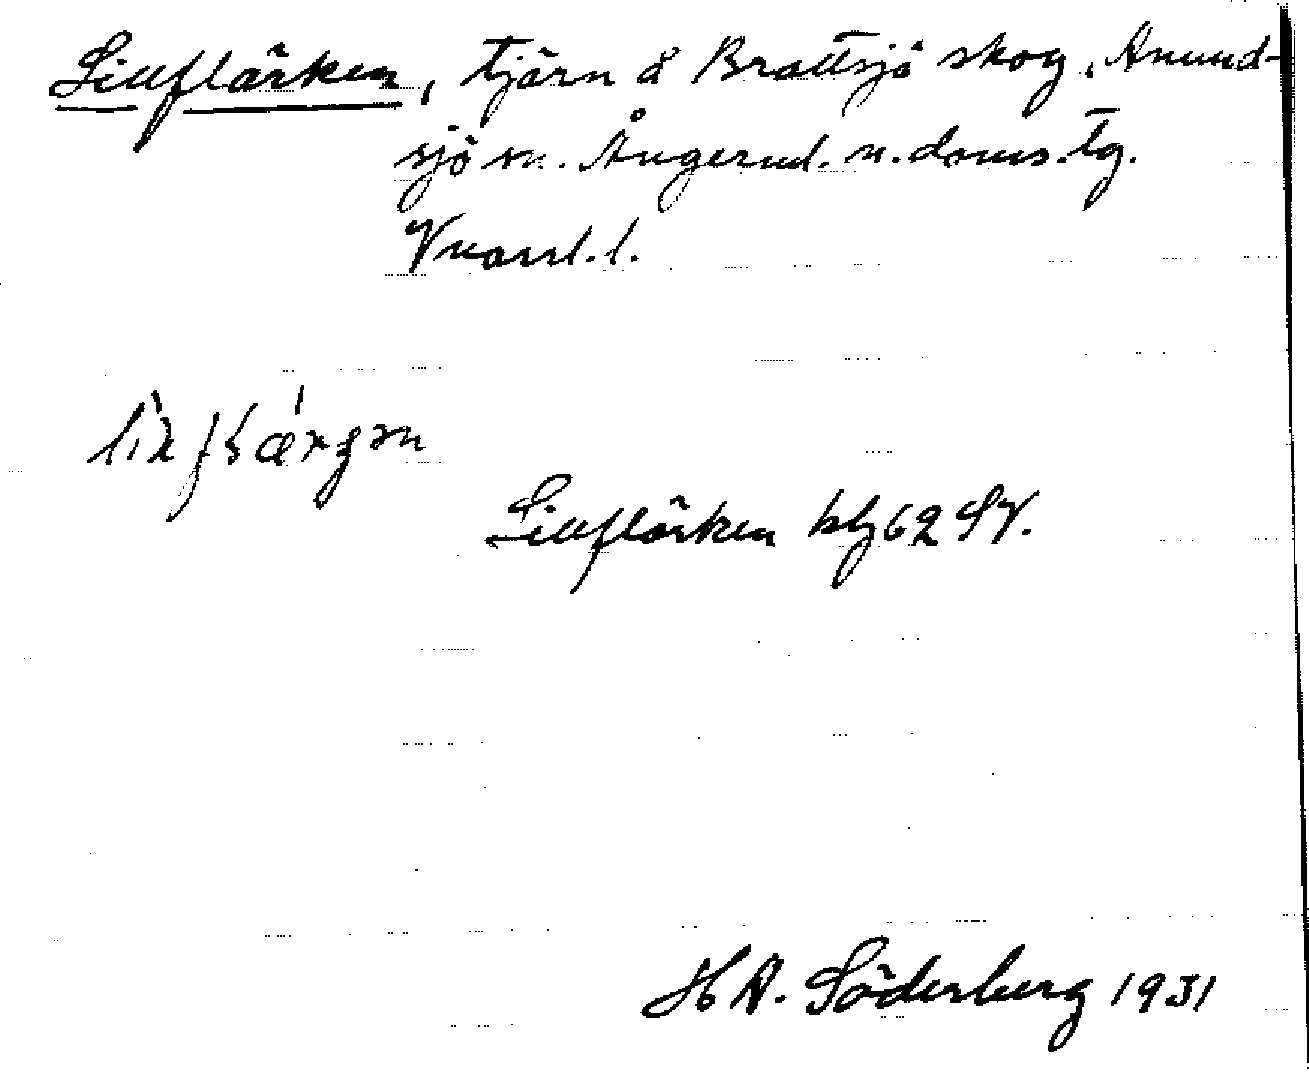 Lillflärken, tjärn å Brattsjö skog, Anund-
sjö sn. Ångerml. n. doms. tg.
Vnorrl. l.
Lillflärken blj 62 SV.
H A. Söderberg 1931